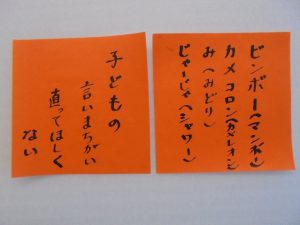 ビンボー(マンボー)
カメコロン(カメレオン)
み(みどり)
じゃーじゃ(シャワー)
子どもの
言いまちがい
直ってほしく
ない